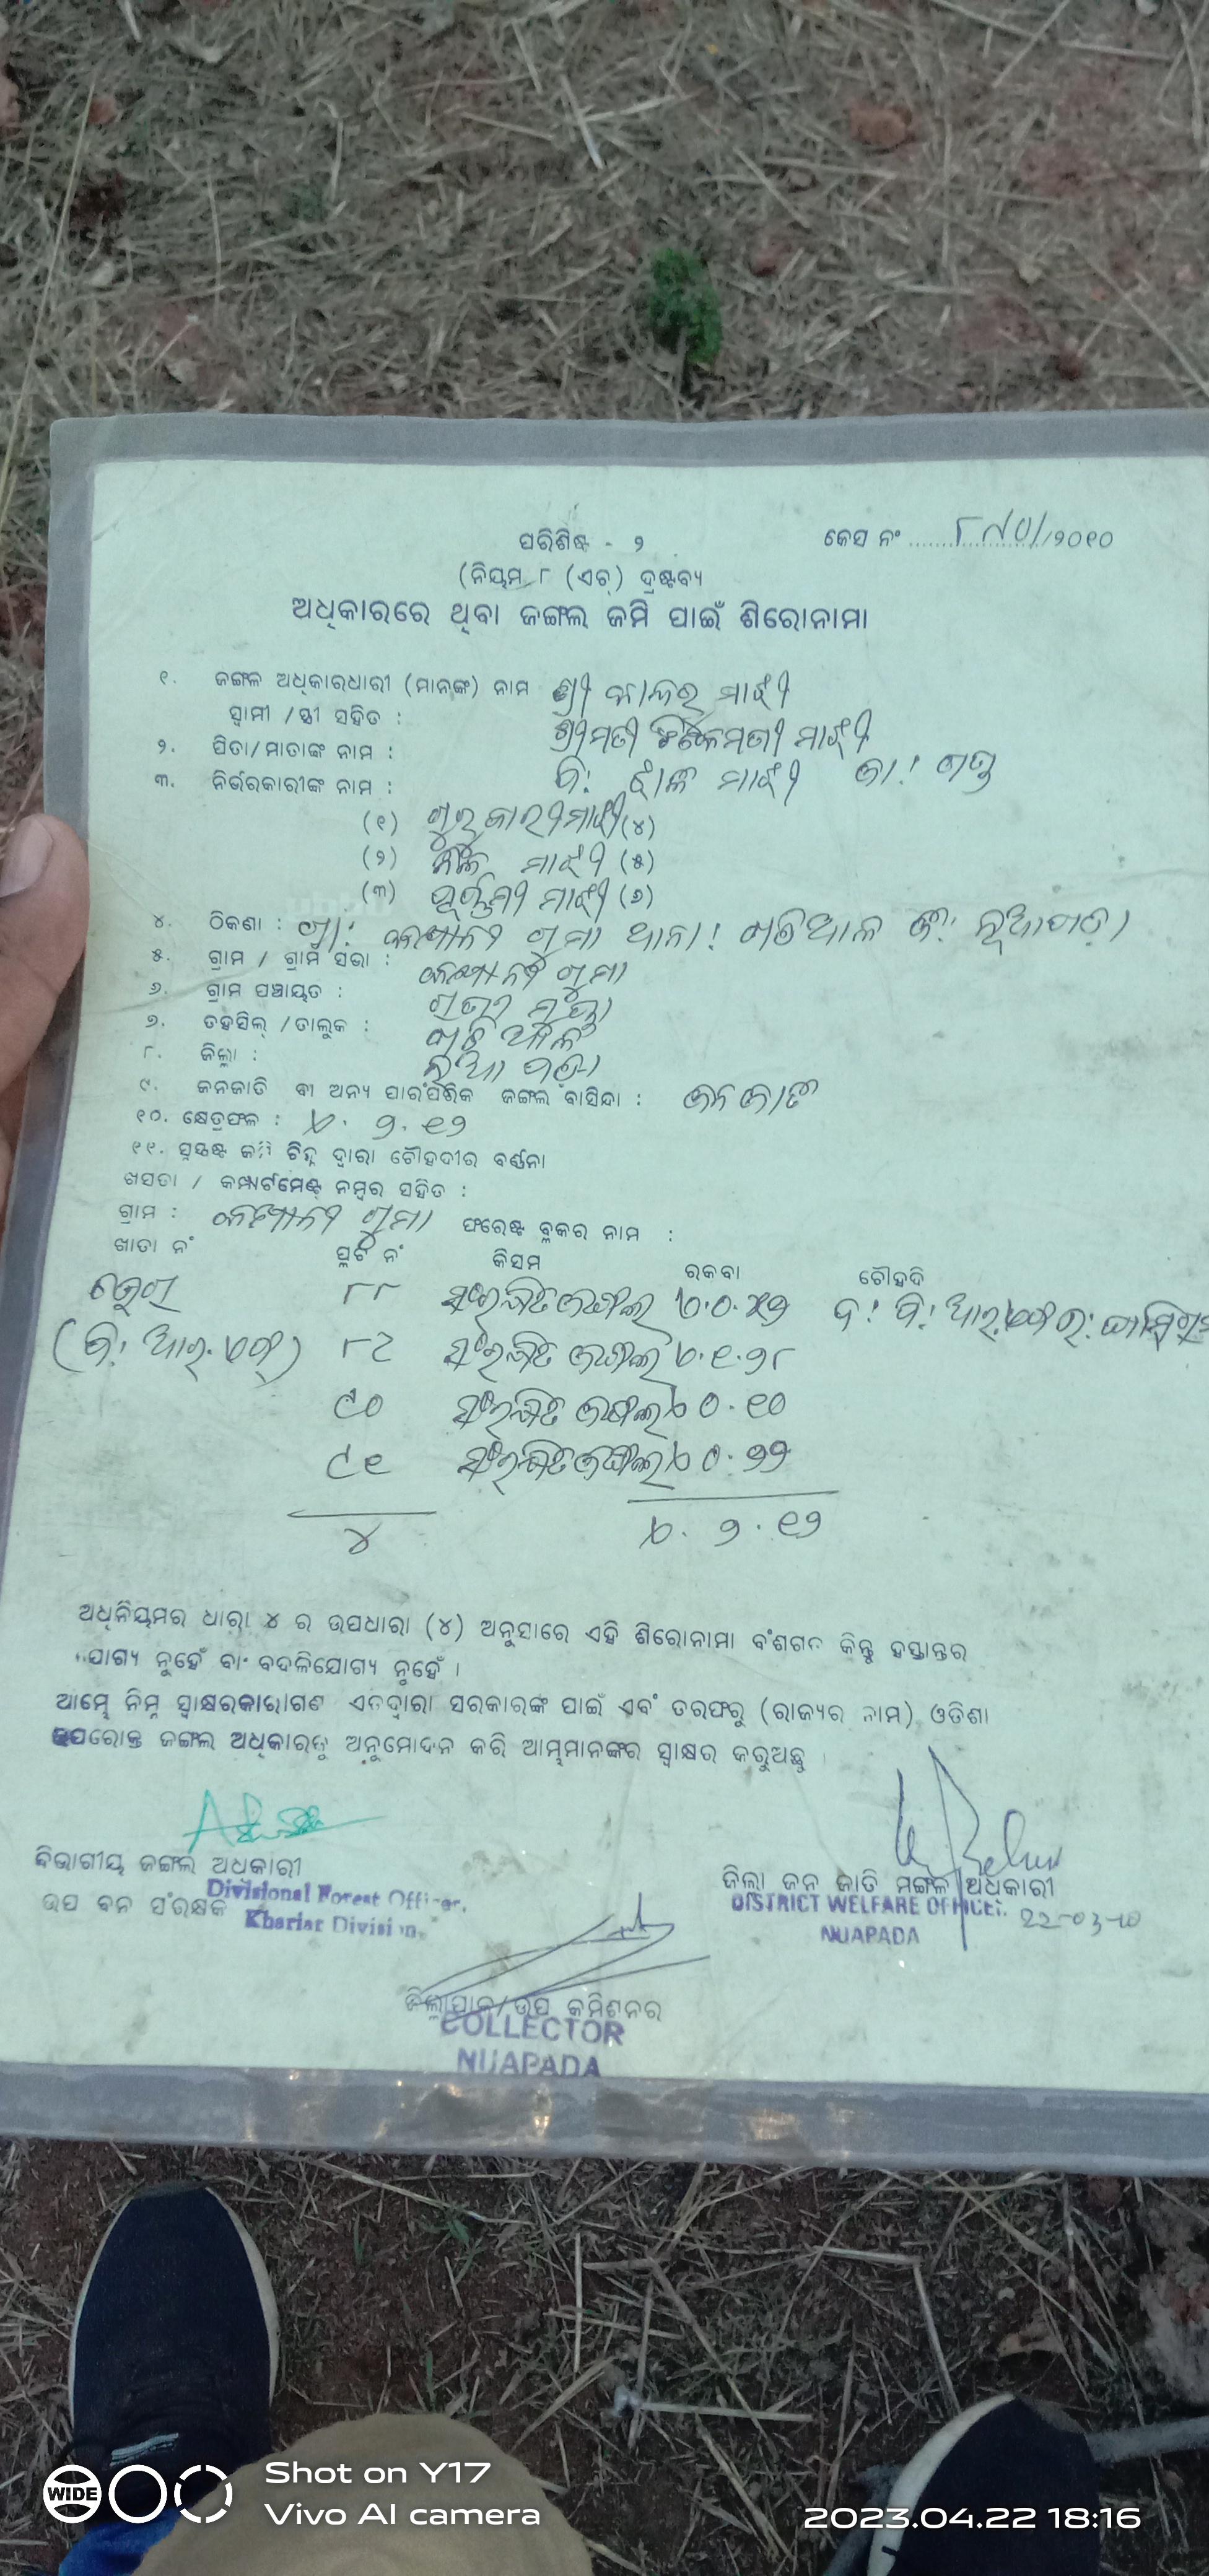 ପରିଶିଷ୍ଟ - ୨
କେସ ନଂ ...../୨୦୧୦
(ନିୟମ ୮ (ଏଚ୍) ଦ୍ରଷ୍ଟବ୍ୟ
ଅଧିକାରରେ ଥିବା ଜଙ୍ଗଲ ଜମି ପାଇଁ ଶିରୋନାମା
୧. ଜଙ୍ଗଳ ଅଧିକାରଧାରୀ (ମାନଙ୍କ) ନାମ ଶ୍ରୀ ମାଝୀ
ସ୍ୱାମୀ / ସ୍ତ୍ରୀ ସହିତ : ଶ୍ରୀମତୀ ମାଝୀ
୨. ପିତା/ମାତାଙ୍କ ନାମ : ପି: ମାଝୀ ଜା: ଗଣ୍ଡ
୩. ନିର୍ଭରକାରୀଙ୍କ ନାମ :
(୧) ଗୁରୁବାରୀ ମାଝୀ (୪)
(୨) ମାଝୀ (୫)
(୩) ମାଝୀ (୬)
୪. ଠିକଣା : ଗ୍ରା: ଗୁମା ଥାନା: ଖଡିଆଳ ଜି: ନୂଆପଡ଼ା
୫. ଗ୍ରାମ / ଗ୍ରାମ ସଭା : ଗୁମା
୬. ଗ୍ରାମ ପଞ୍ଚାୟତ :
୭. ତହସିଲ୍ /ତାଲୁକ : ଖଡିଆଳ
୮. ଜିଲ୍ଲା : ନୂଆପଡ଼ା
୯. ଜନଜାତି ବା ଅନ୍ୟ ପାରଂପରିକ ଜଙ୍ଗଲ ବାସିନ୍ଦା : ଜନଜାତି
୧୦. କ୍ଷେତ୍ରଫଳ : ଏ. ୨.୧୨
୧୧. ସୁସ୍ପଷ୍ଟ ଜମି ଚିହ୍ନ ଦ୍ୱାରା ଚୌହଦୀର ବର୍ଣ୍ଣନା
ଖସଡା / କମ୍ପାର୍ଟମେଣ୍ଟ ନମ୍ବର ସହିତ :
ଗ୍ରାମ : ଗୁମା ଫରେଷ୍ଟ ବ୍ଲକର ନାମ :
ଖାତା ନଂ ପ୍ଲଟ ନଂ କିସମ ରକବା ଚୌହଦି
୮୮ ସଂରକ୍ଷିତ ଜଙ୍ଗଲ
(ପି: ଆର୍. ଏଫ୍) ସଂରକ୍ଷିତ ଜଙ୍ଗଲ ଏ.୧.୨୮
୯୦ ସଂରକ୍ଷିତ ଜଙ୍ଗଲ ଏ ୦.୧୦
୯୧ ସଂରକ୍ଷିତ ଜଙ୍ଗଲ ଏ ୦.୨୨
୪ ଏ. ୨.୧୨
ଅଧିନିୟମର ଧାରା ୪ ର ଉପଧାରା (୪) ଅନୁସାରେ ଏହି ଶିରୋନାମା ବଂଶଗତ କିନ୍ତୁ ହସ୍ତାନ୍ତର
ଯୋଗ୍ୟ ନୁହେଁ ବା ବଦଳିଯୋଗ୍ୟ ନୁହେଁ ।
ଆମ୍ଭେ ନିମ୍ନ ସ୍ୱାକ୍ଷରକାରୀଗଣ ଏତଦ୍ୱାରା ସରକାରଙ୍କ ପାଇଁ ଏବଂ ତରଫରୁ (ରାଜ୍ୟର ନାମ) ଓଡିଶା
ଉପରୋକ୍ତ ଜଙ୍ଗଲ ଅଧିକାରକୁ ଅନୁମୋଦନ କରି ଆମ୍ଭମାନଙ୍କର ସ୍ୱାକ୍ଷର କରୁଅଛୁ ।
ବିଭାଗୀୟ ଜଙ୍ଗଲ ଅଧିକାରୀ
ଉପ ବନ ସଂରକ୍ଷକ
Divisional Forest Officer,
Khariar Division.
ଜିଲା ଜନ ଜାତି ମଙ୍ଗଳ ଅଧିକାରୀ
DISTRICT WELFARE OFFICER
NUAPADA
22-03-10
ଜିଲ୍ଲାପାଳ/ଉପ କମିଶନର
COLLECTOR
NUAPADA
WIDE
Shot on Y17
Vivo AI camera
2023.04.22 18:16